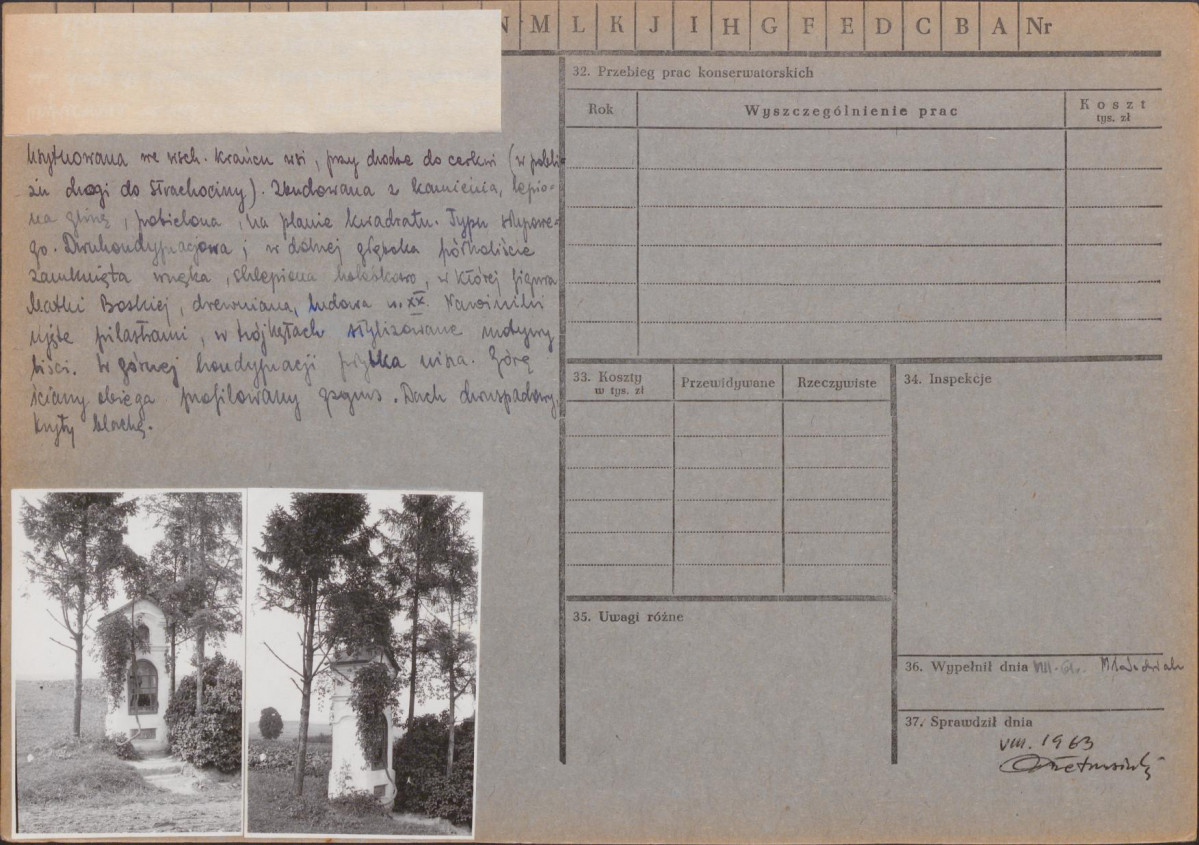 N M L K J I H G F E D C B A Nr
Usytuowana we wsch. krańcu wsi, przy drodze do cerkwi (w pobli-
żu drogi do Strachociny). Zbudowana z kamienia, lepio-
na gliną, pobielona, na planie kwadratu. Typu słupowe-
go. Dwukondygnacjowa; w dolnej głęboka półkoliście
zamknięta wnęka, sklepiona kolebkowo, w której figura
Matki Boskiej, drewniana, ludowa w. XX. Narożniki
ujęte pilastrami, w trójkątach stylizowane motywy
liści. W górnej kondygnacji płytka nisza. Górę
ściany obiega profilowany gzyms. Dach dwuspadowy,
kryty blachą.
32. Przebieg prac konserwatorskich
Rok
Wyszczególnienie prac
Koszt
tys. zł
33. Koszty
w tys. zł
Przewidywane
Rzeczywiste
34. Inspekcje
35. Uwagi różne
36. Wypełnił dnia
37. Sprawdził dnia
VIII. 1963